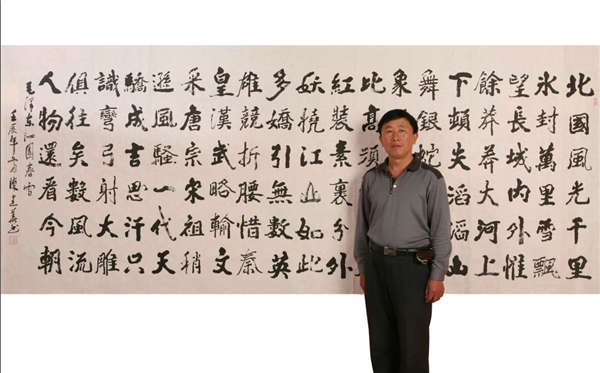 北國風光千里
冰封萬里雪飄
望長城内外惟
餘莽莽大河上
下頓失滔滔山
舞銀蛇
象
比高須
紅裝素裹分外
妖嬈江山如此
多嬌引無數英
雄競折腰惜秦
皇漢武略輸文
采唐宗宋祖稍
遜風騷一代天
驕成吉思汗只
識彎弓射大雕
俱往矣數風流
人物還看今朝
毛澤东沁園春雪
壬辰年